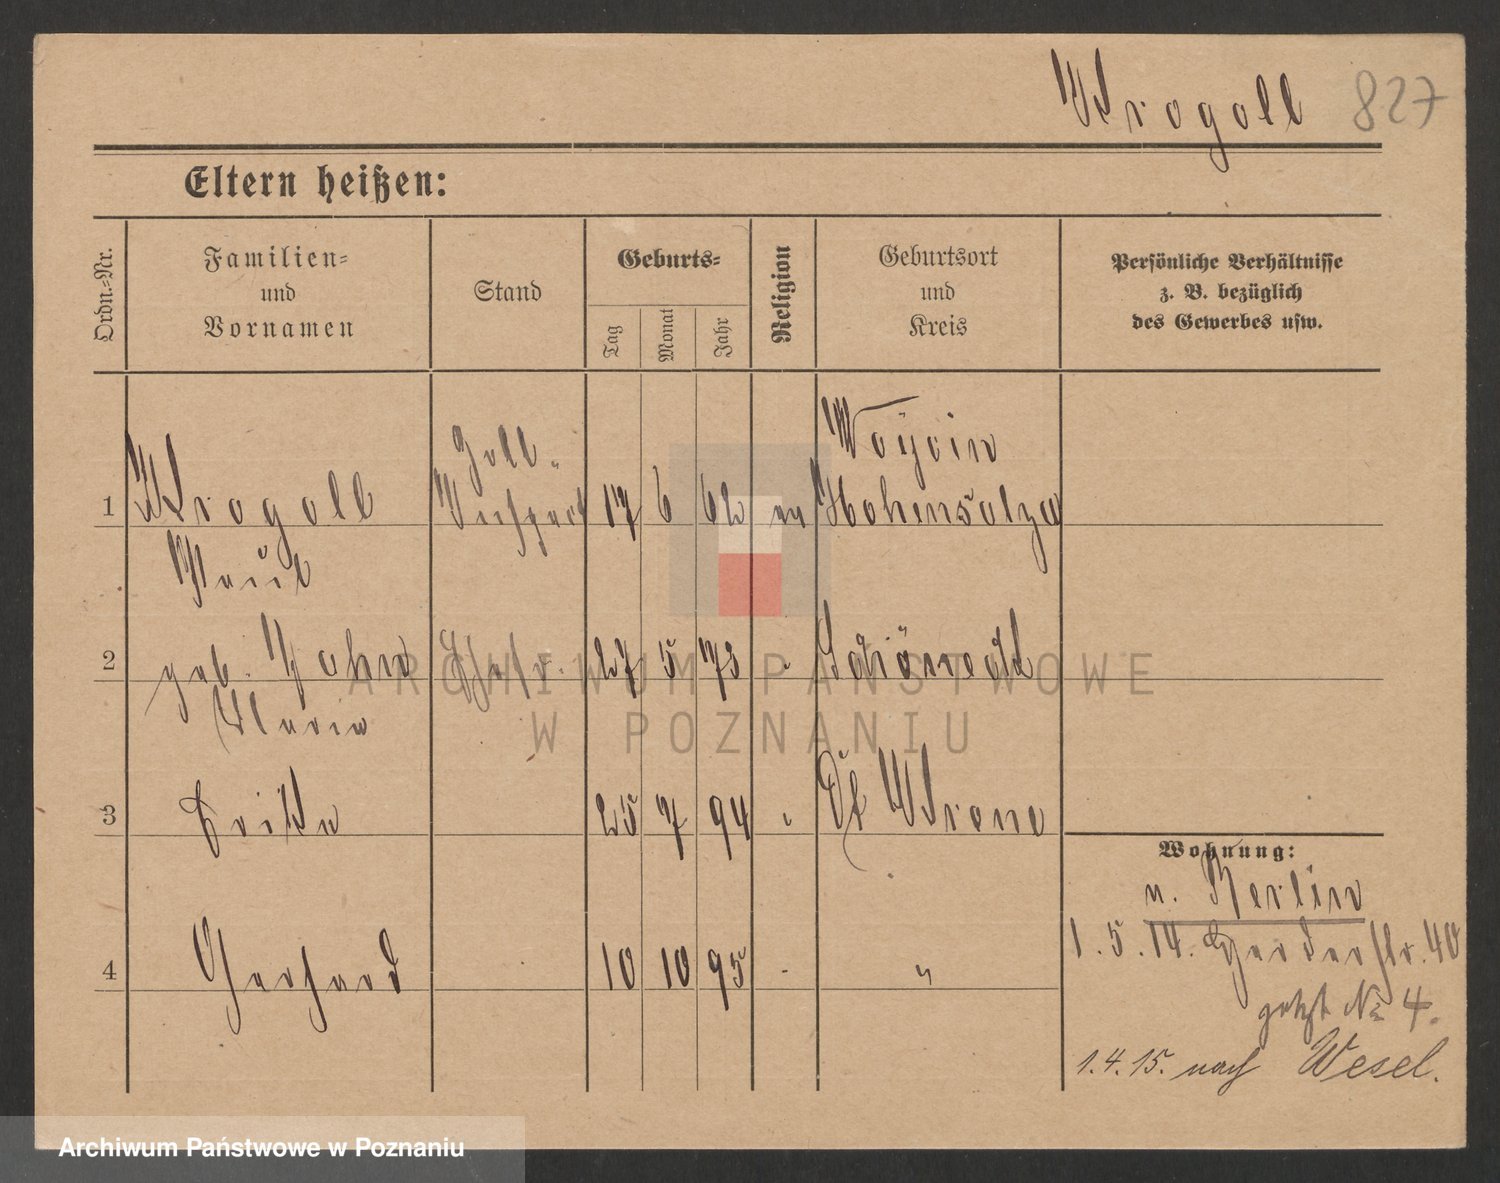 Wrogoll 827
Eltern heißen:
Ordn.-Nr.
Familien- und Vornamen
Stand
Geburts-
Tag
Monat
Jahr
Religion
Geburtsort und Kreis
Persönliche Verhältnisse z. B. bezüglich des Gewerbes usw.
Woycin
Zoll-
1 Wrogoll 17 6 62 ev Hohensalza
Paul
2 geb. Jahn Ehefr. 27 5 73 "
Maria
3 25 7 94 " Dt Krone
Wohnung:
n. Berlin
1.5.14. Herderstr. 40
4 Gerhard 10 10 95 - "
jetzt No 4.
1.4.15. nach Wesel.
ARCHIWUM PAŃSTWOWE
W POZNANIU
Archiwum Państwowe w Poznaniu